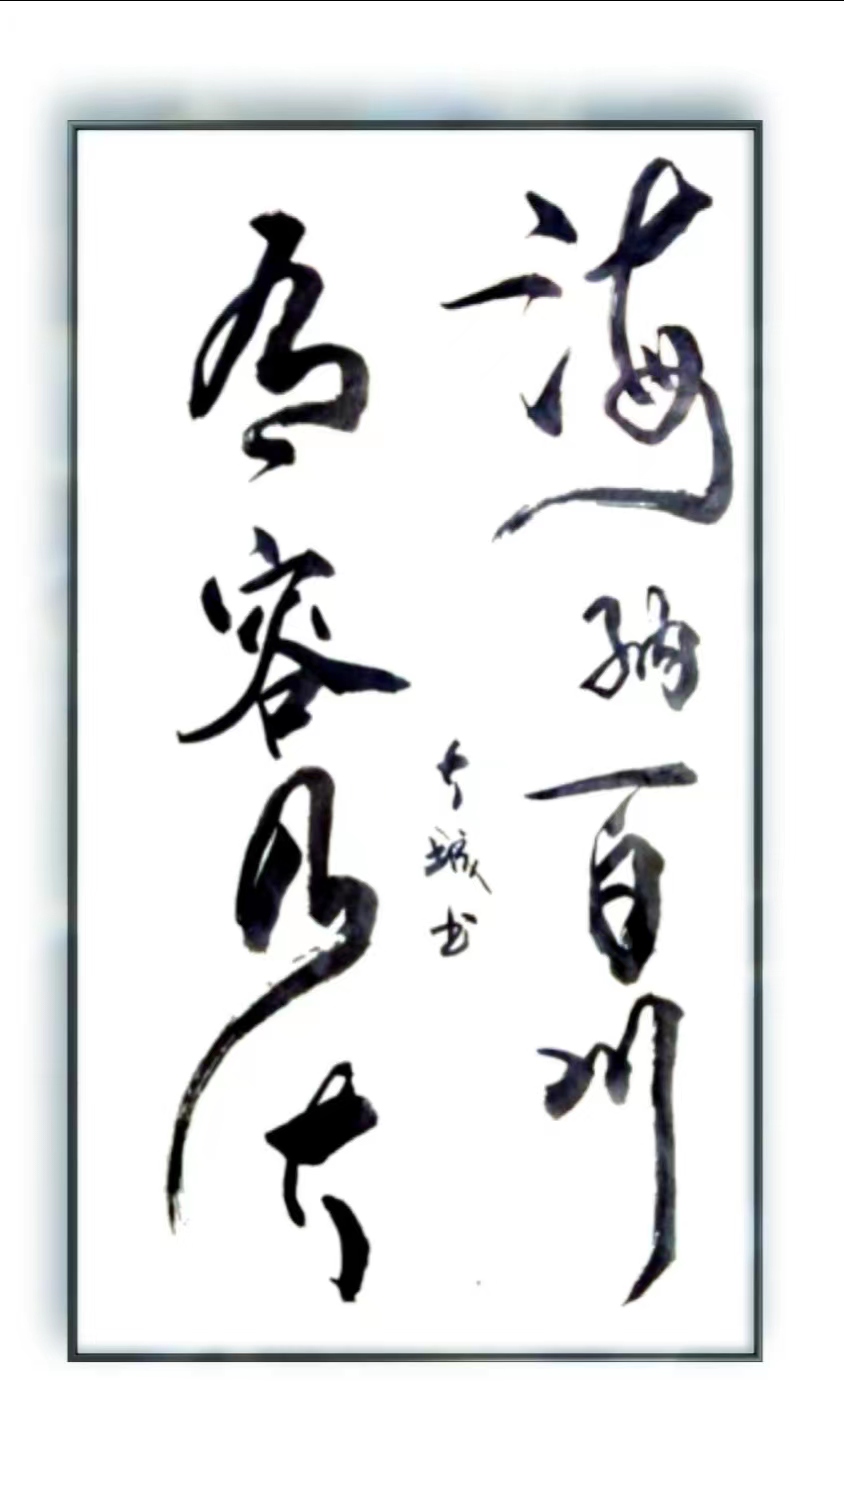 海纳百川
有容乃大
大城书